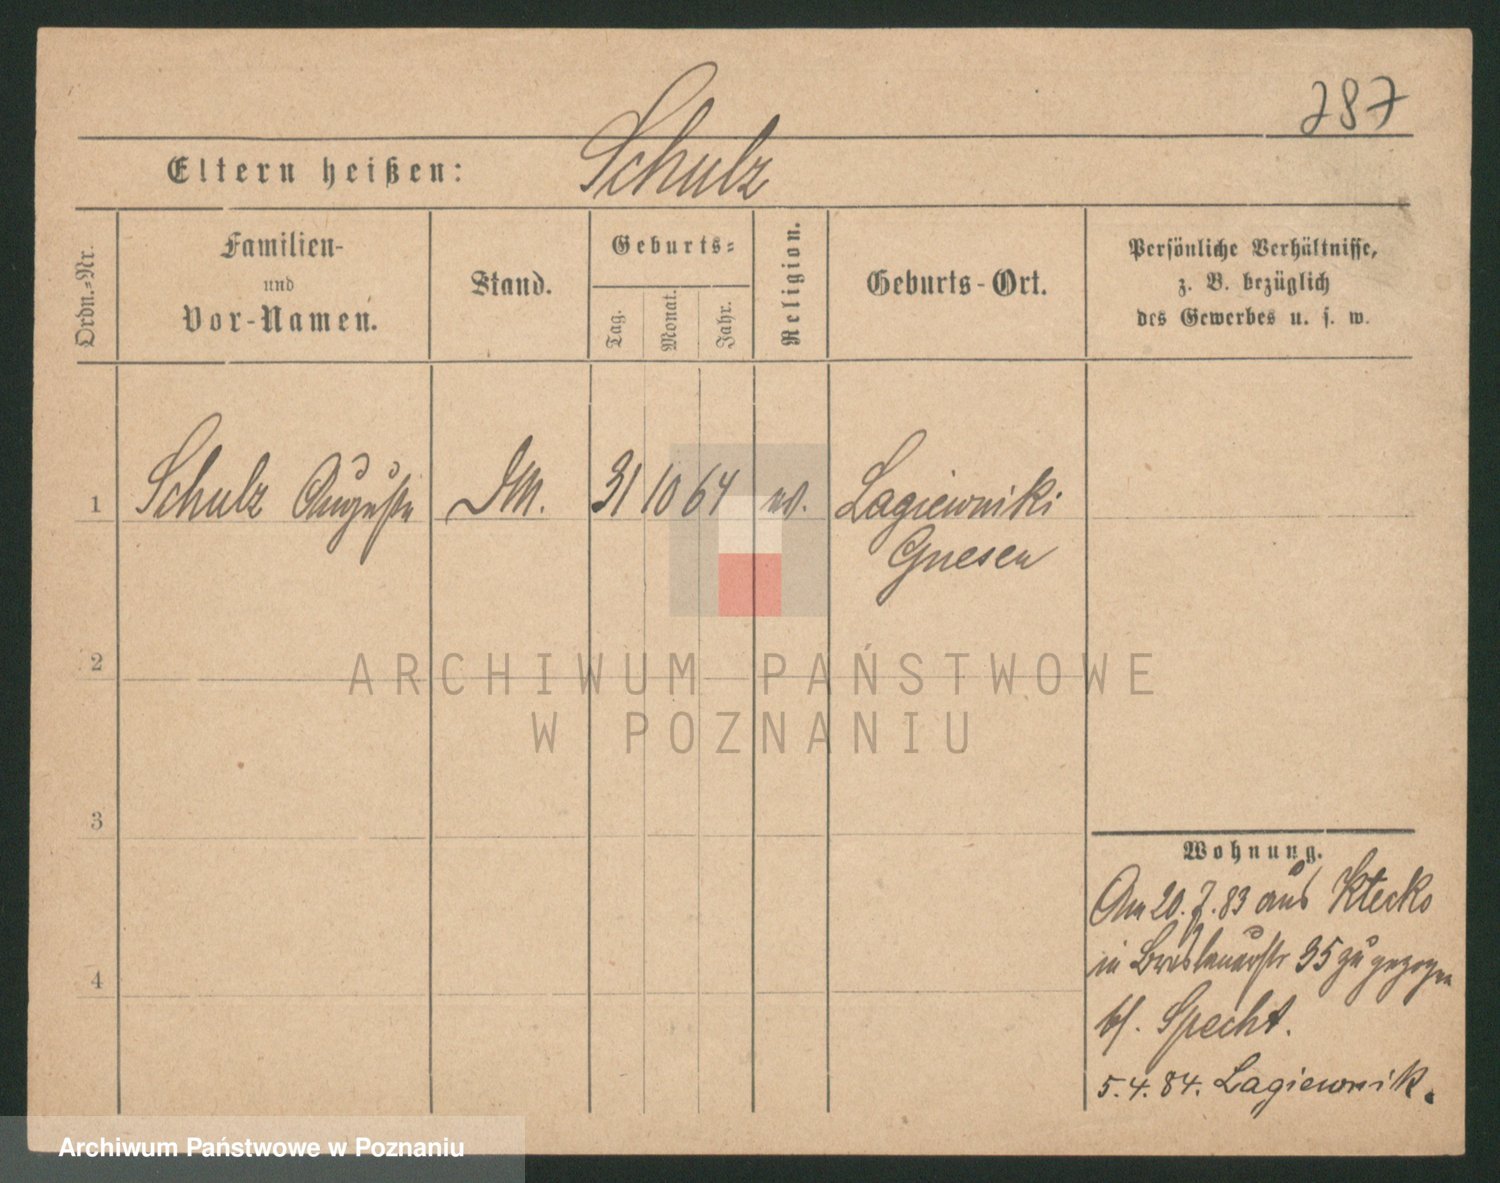 787
Eltern heißen: Schulz
Ordn.-Nr.
Familien-
und
Vor-Namen.
Stand.
Geburts-
Tag.
Monat.
Jahr.
Religion.
Geburts-Ort.
Persönliche Verhältnisse,
z. B. bezüglich
des Gewerbes u. s. w.
1 Schulz Auguste DM. 31 10 64 ev. Lagiewniki
Gnesen
2
3
4
ARCHIWUM PAŃSTWOWE
W POZNANIU
Wohnung.
Am 20.7.83 aus Klecko
in Breslauerstr 35 zugezogen
bf. Specht.
5.4.84. Lagiewnik.
Archiwum Państwowe w Poznaniu